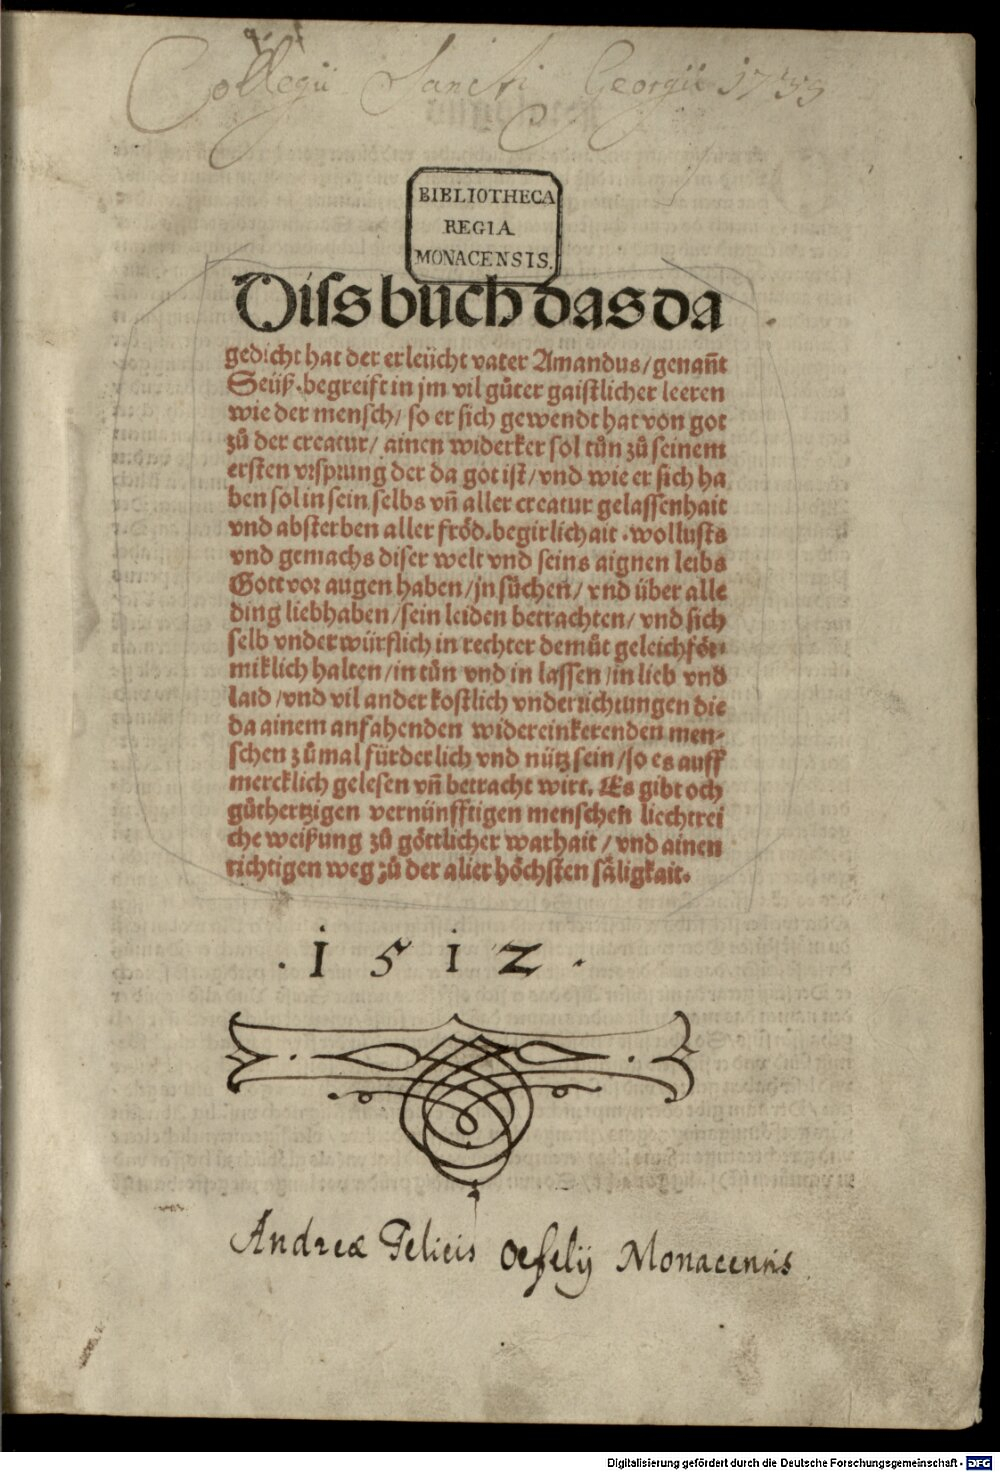 Collegii Sancti Georgii 1755
BIBLIOTHECA
REGIA
MONACENSIS.
Diſs buch das da
gedicht hat der erleücht vater Amandus/genañt
Seüß.begreift in jm vil gůter gaiſtlicher leeren
wie der menſch/ ſo er ſich gewendt hat von got
zů der creatur/ ainen widerker ſol tůn zů ſeinem
erſten vrſprung der da got iſt/vnd wie er ſich ha
ben ſol in ſein ſelbs vñ aller creatur gelaſſenhait
vnd abſterben aller frőd.begirlichait.wolluſts
vnd gemachs diſer welt vnd ſeins aignen leibs
Gott vor augen haben/jn sůchen/ vnd über alle
ding liebhaben/ſein leiden betrachten/ vnd ſich
ſelb vnderwürflich in rechter demůt geleichfőr-
miklich halten/in tůn vnd in laſſen/in lieb vnd
laid/vnd vil ander koſtlich vnderrichtungen die
da ainem anfahenden widereinkerenden men-
ſchen zůmal fürderlich vnd nütz ſein/ſo es auff
mercklich geleſen vñ betracht wirt. Es gibt och
gůthertzigen vernünfftigen menſchen liechtrei
che weißung zů gőttlicher warhait/vnd ainen
richtigen weg zů der aller hőchſten ſåligkait.
.1512.
Andreæ Felicis Oefelij Monacensis
Digitalisierung gefördert durch die Deutsche Forschungsgemeinschaft - DFG